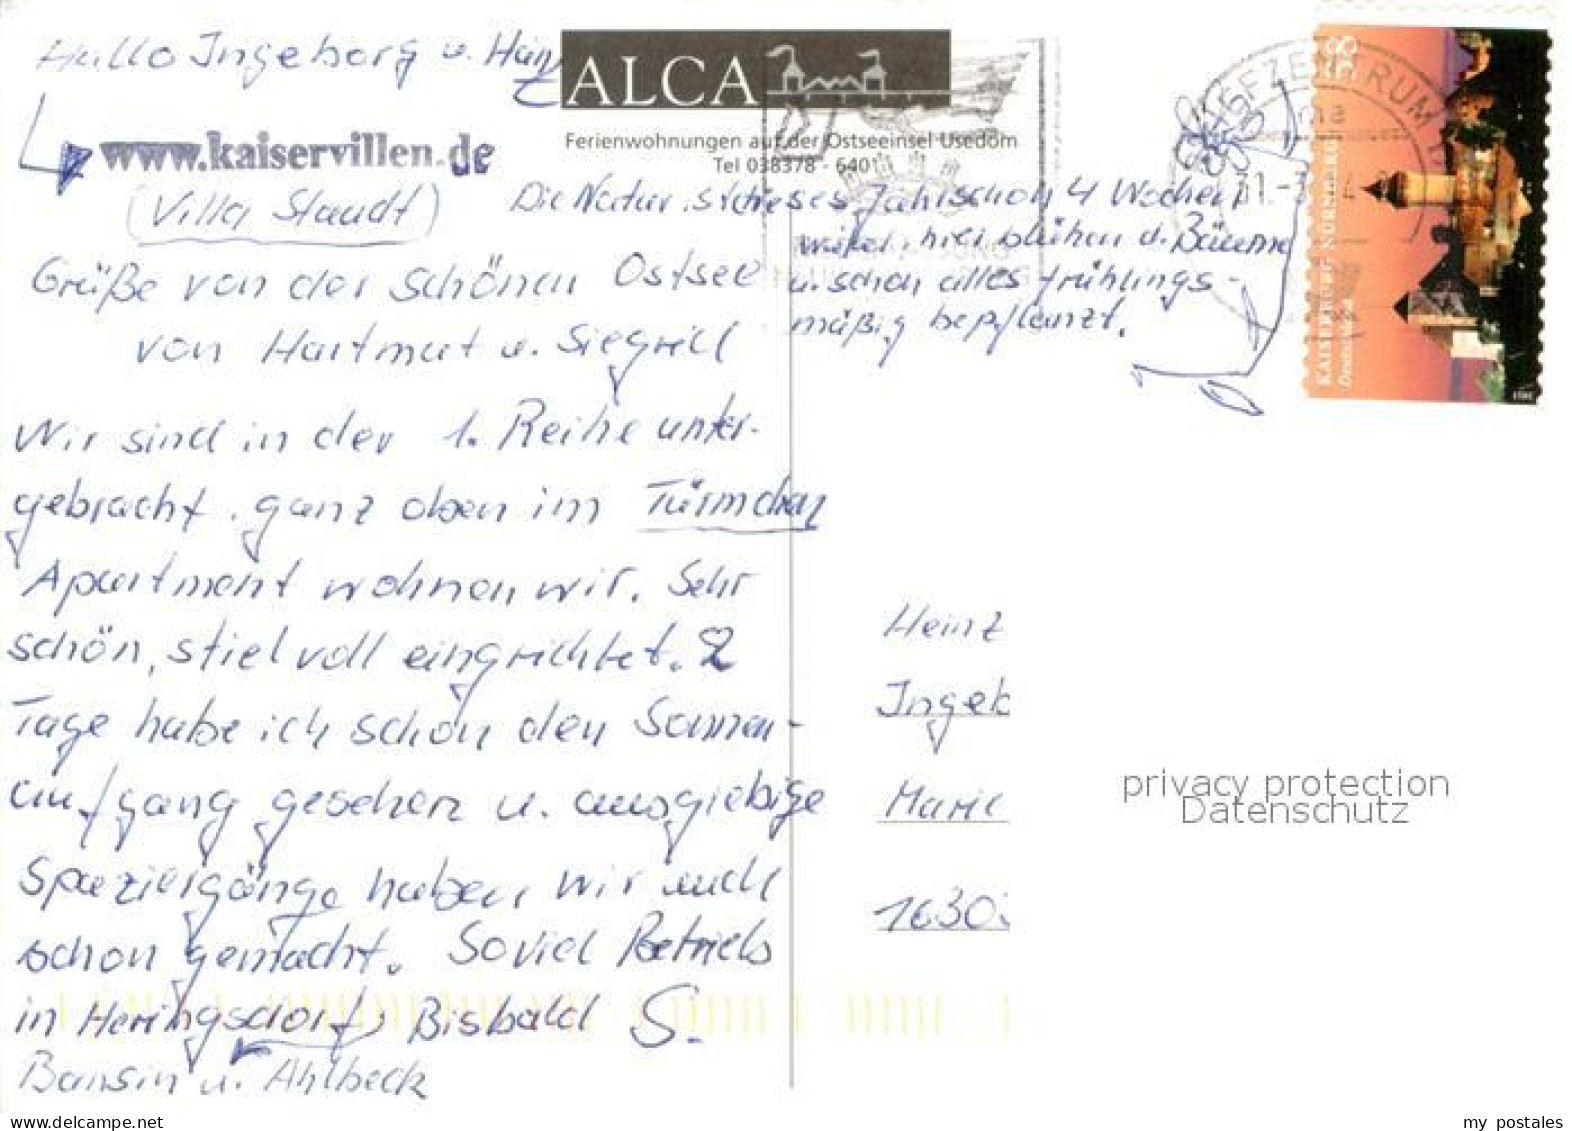 Hallo Ingeborg u. Heinz
ALCA
Ferienwohnungen auf der Ostseeinsel Usedom
Tel 038378 - 6401
www.kaiservillen.de
(Villa Staudt)
Grüße von der schönen Ostsee
von Hartmut u. Siegrid
Wir sind in der 1. Reihe unter-
gebracht. ganz oben im Türmchen
Apartment wohnen wir. Sehr
schön, stielvoll eingrichtet. 2
Tage habe ich schon den Sonnen-
aufgang gesehen u. ausgiebige
Spaziergänge haben wir auch
schon gemacht. Soviel Betrieb
in Heringsdorf, Bisbald S.
Bansin u. Ahlbeck
Die Natur ist dieses Jahr schon 4 Wochen
weiter. hier blühen d. Bäume
u. schon alles frühlings-
mäßig bepflanzt.
BRIEFZENTRUM
58
KAISERBURG NÜRNBERG
Deutschland
Heinz
Ingeb
Marie
1630
privacy protection
Datenschutz
my postales